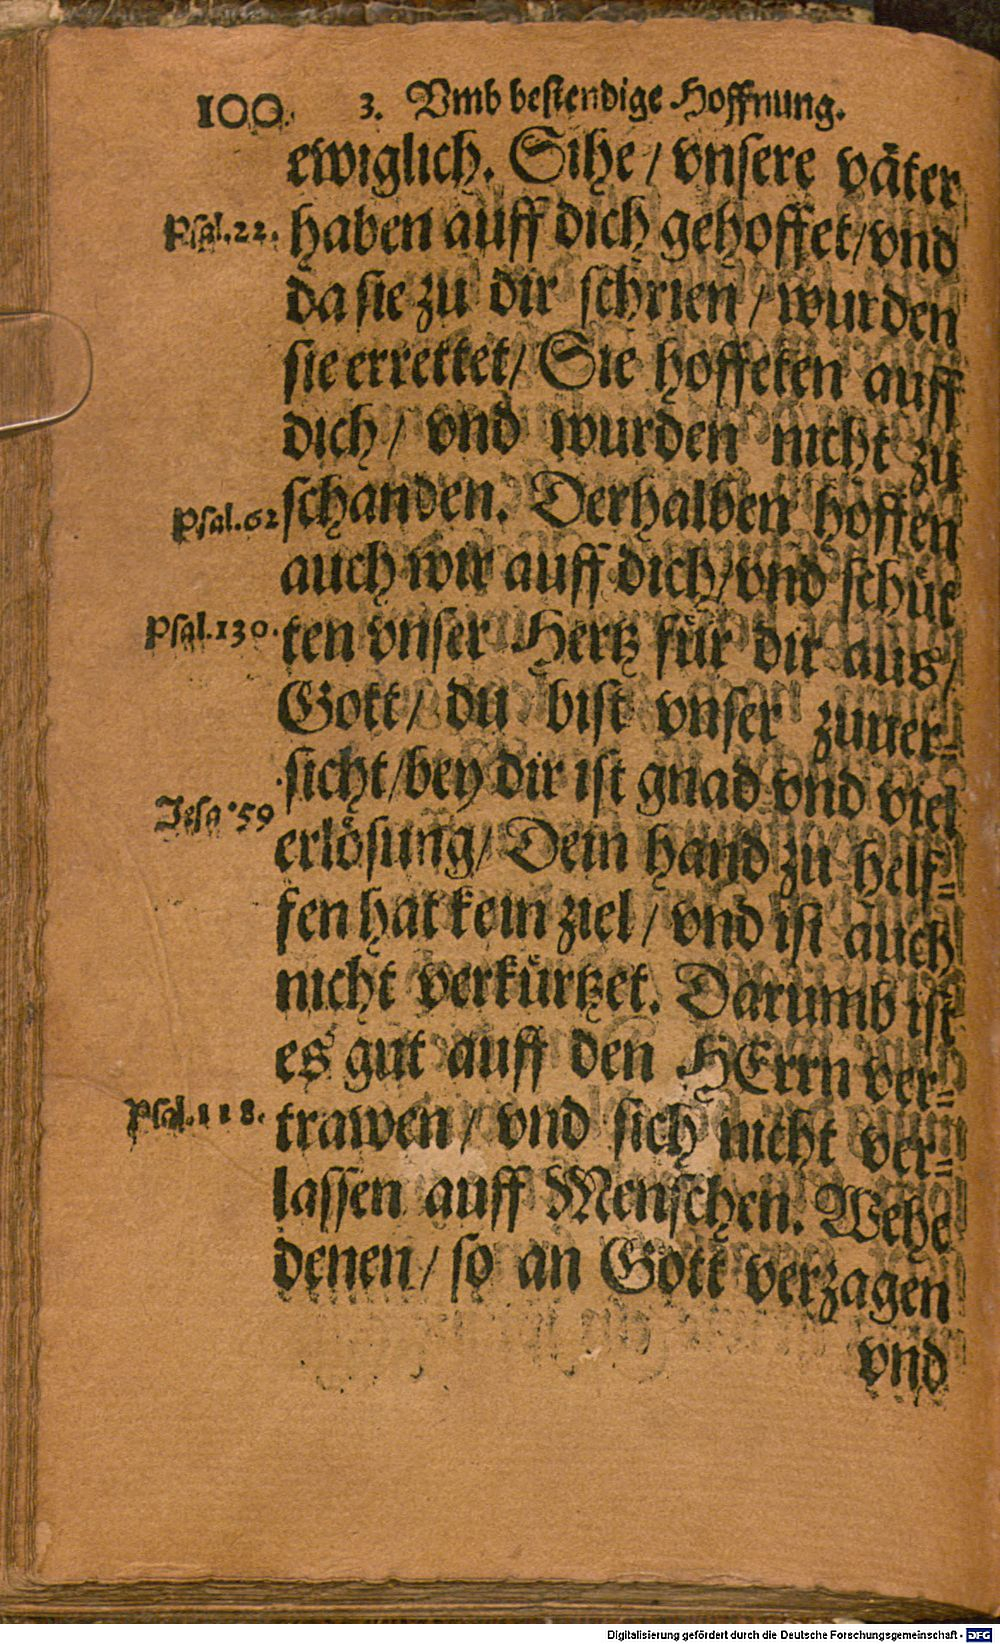 100 3. Vmb bestendige Hoffnung.
ewiglich. Sihe / vnsere väter
Psal.22. haben auff dich gehoffet / vnd
da sie zu dir schrien / wurden
sie errettet / Sie hoffeten auff
dich / vnd wurden nicht zu
Psal.62 schanden. Derhalben hoffen
auch wir auff dich / vnd schüt
Psal.130. ten vnser Hertz für dir aus /
Gott / du bist vnser zuuer-
sicht / bey dir ist gnad vnd viel
Jesa.59 erlösung / Dein hand zu helf-
fen hat kein ziel / vnd ist auch
nicht verkürtzet. Darumb ist
es gut auff den HErrn ver-
Psal.118. trawen / vnd sich nicht ver-
lassen auff Menschen. Wehe
denen / so an Gott verzagen
vnd
Digitalisierung gefördert durch die Deutsche Forschungsgemeinschaft - DFG